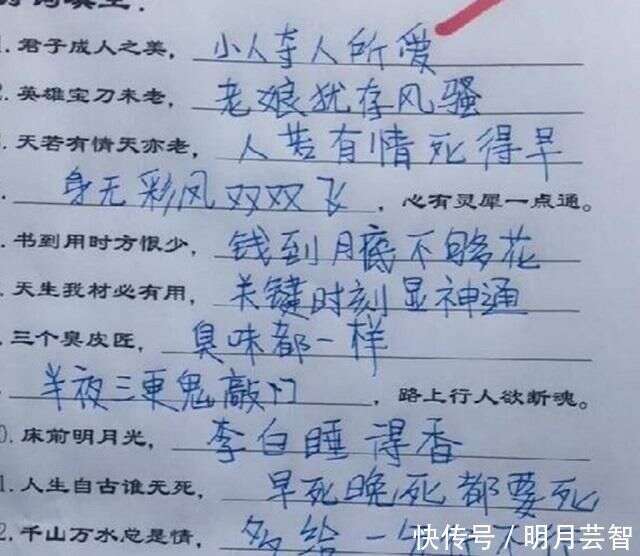 君子成人之美，小人夺人所爱
英雄宝刀未老，老娘犹存风骚
天若有情天亦老，人若有情死得早
身无彩凤双双飞，心有灵犀一点通。
书到用时方恨少，钱到月底不够花
天生我材必有用，关键时刻显神通
三个臭皮匠，臭味都一样
半夜三更鬼敲门，路上行人欲断魂。
0. 床前明月光，李白睡得香
1. 人生自古谁无死，早死晚死都要死
2. 千山万水总是情，多给一
快传号 / 明月芸智